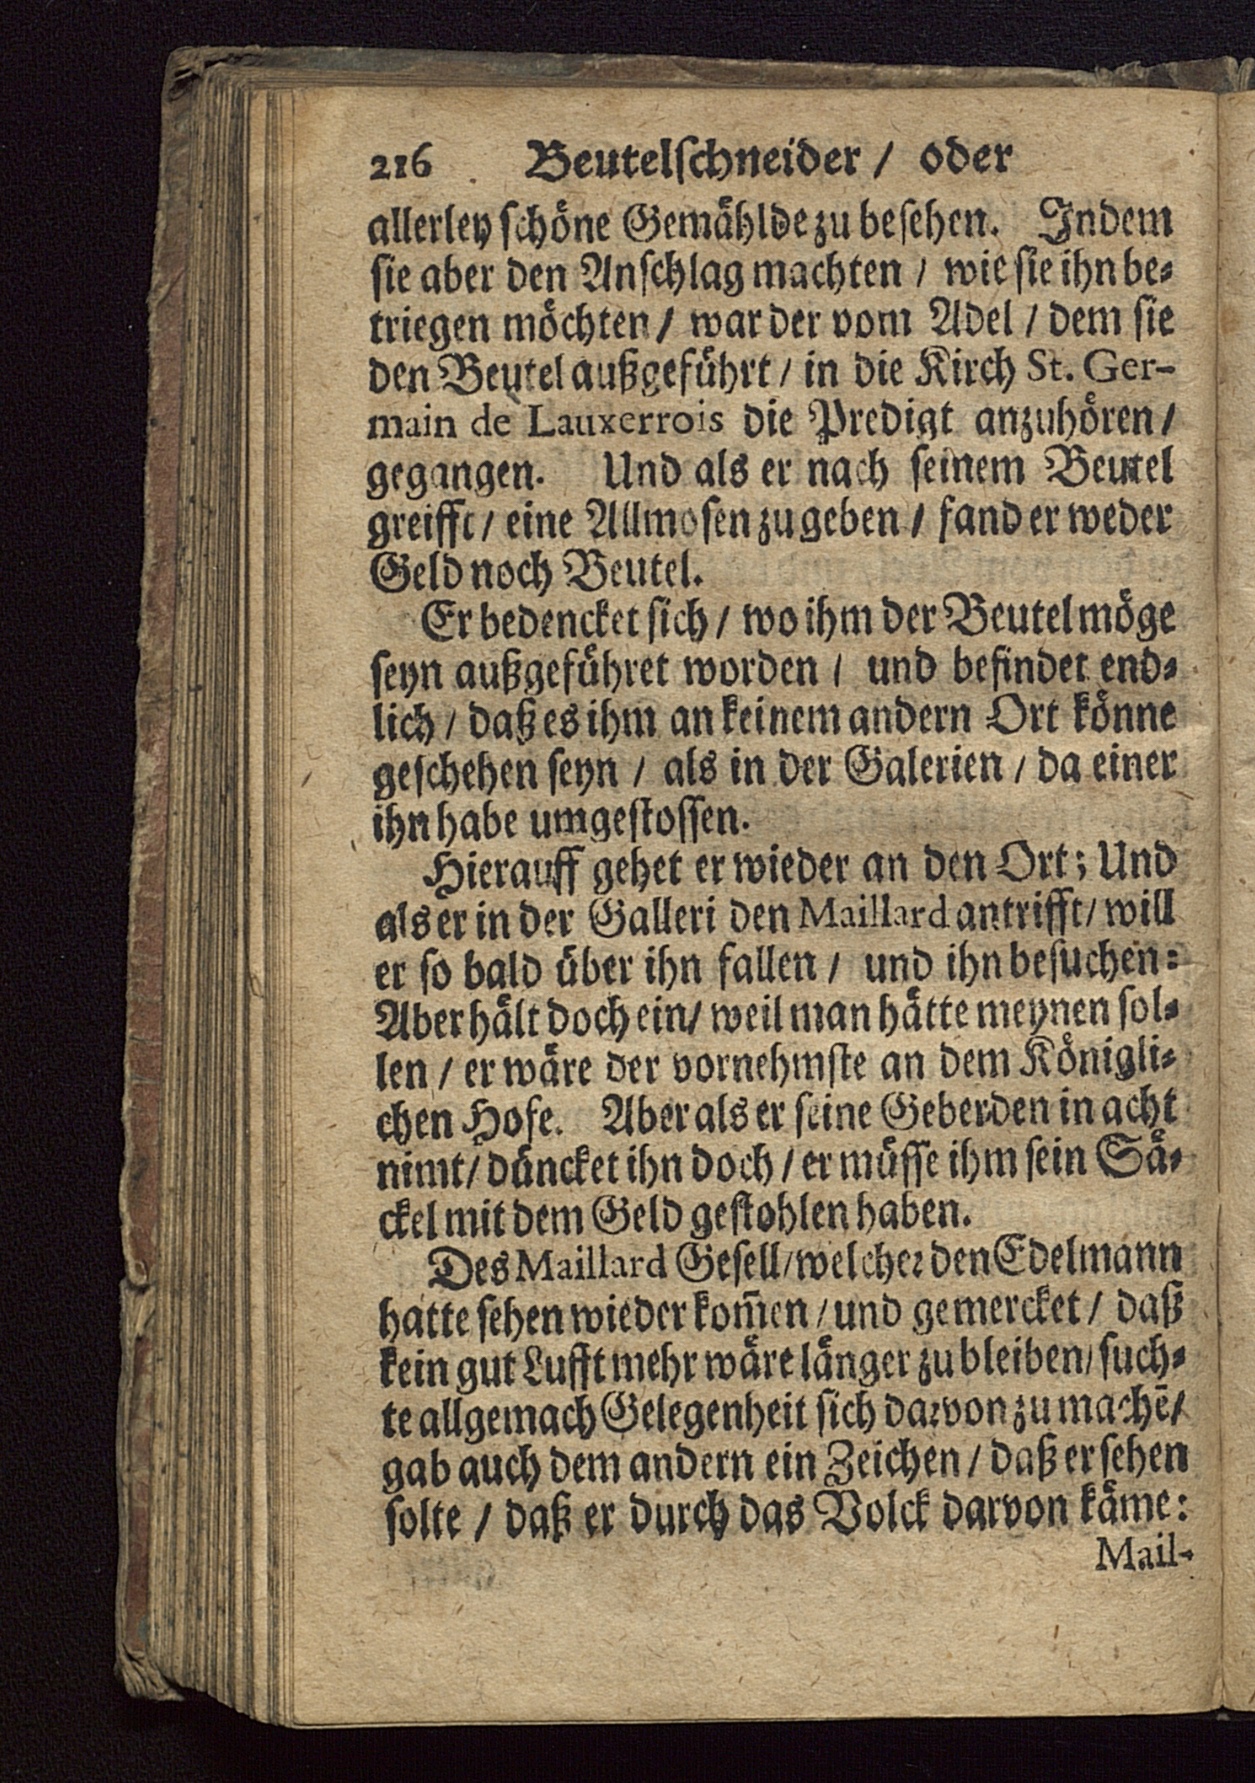 216 Beutelſchneider / oder
allerley ſchöne Gemählde zu beſehen. Indem
ſie aber den Anſchlag machten / wie ſie ihn be-
triegen möchten / war der vom Adel / dem ſie
den Beutel außgeführt / in die Kirch St. Ger-
main de Lauxerrois die Predigt anzuhören /
gegangen. Und als er nach ſeinem Beutel
greifft / eine Allmoſen zu geben / fand er weder
Geld noch Beutel.
Er bedencket ſich / wo ihm der Beutel möge
ſeyn außgeführet worden / und befindet end-
lich / daß es ihm an keinem andern Ort könne
geſchehen ſeyn / als in der Galerien / da einer
ihn habe umgeſtoſſen.
Hierauff gehet er wieder an den Ort; Und
als er in der Galleri den Maillard antrifft / will
er ſo bald über ihn fallen / und ihn beſuchen:
Aber hält doch ein / weil man hätte meynen ſol-
len / er wäre der vornehmſte an dem Königli-
chen Hofe. Aber als er ſeine Geberden in acht
nimt / düncket ihn doch / er müſſe ihm ſein Sä-
ckel mit dem Geld geſtohlen haben.
Des Maillard Geſell / welcher den Edelmann
hatte ſehen wieder kom̃en / und gemercket / daß
kein gut Lufft mehr wäre länger zu bleiben / ſuch-
te allgemach Gelegenheit ſich darvon zu machē /
gab auch dem andern ein Zeichen / daß er ſehen
ſolte / daß er durch das Volck darvon käme:
Mail-